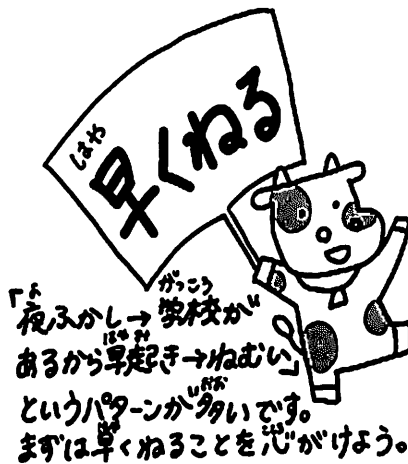 早くねる
「夜ふかし→学校が
あるから早起き→ねむい」
というパターンが多いです。
まずは早くねることを心がけよう。